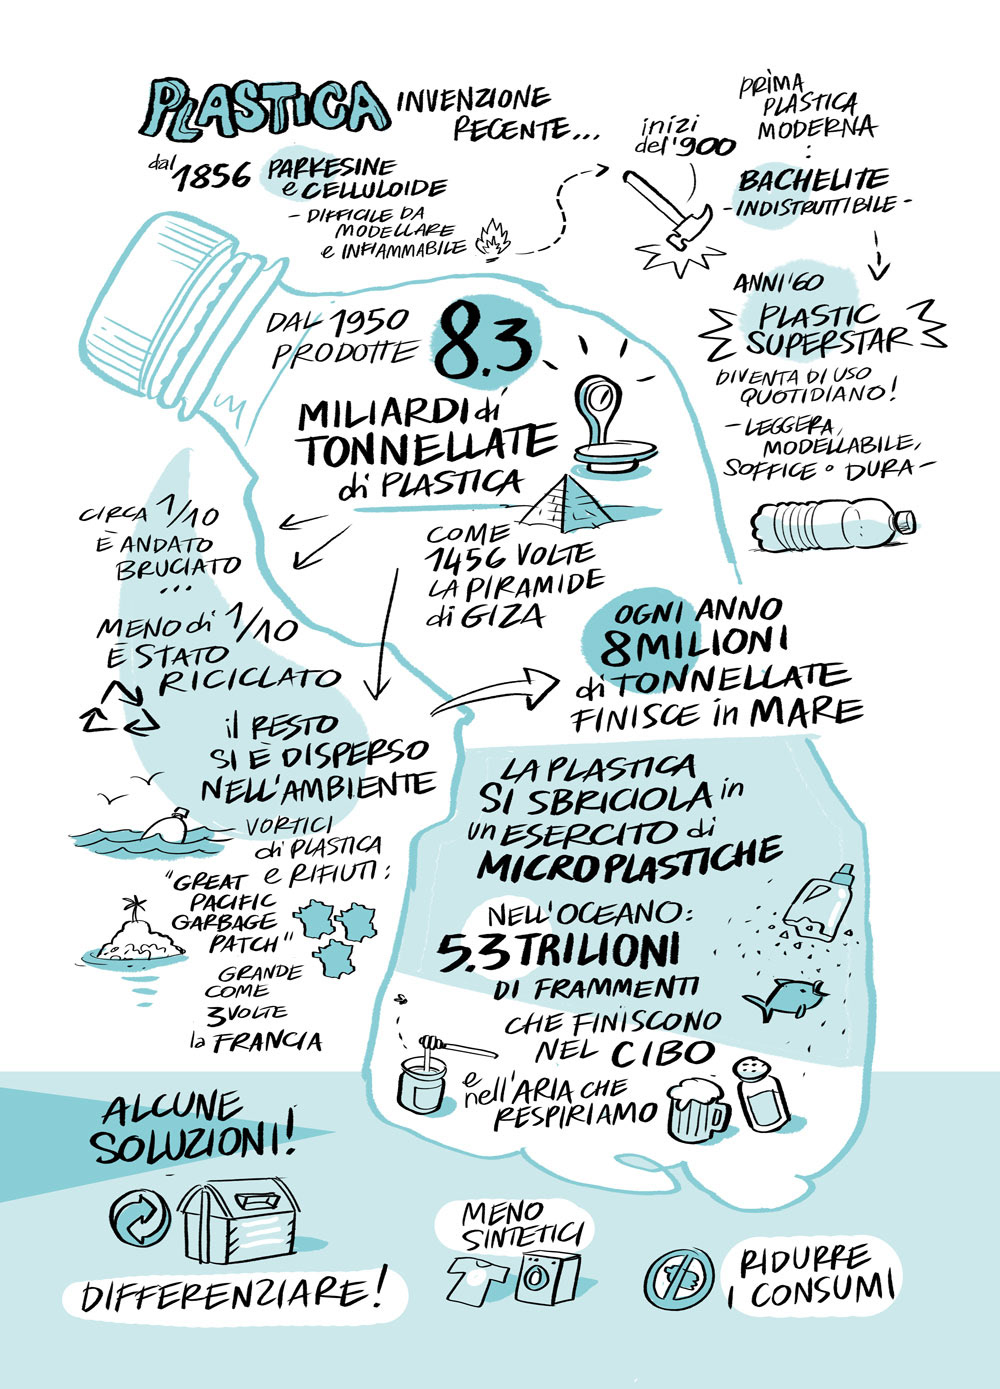 PLASTICA INVENZIONE
RECENTE...
dal 1856 PARKESINE
e CELLULOIDE
- DIFFICILE DA
MODELLARE
e INFIAMMABILE
inizi
del '900
PRIMA
PLASTICA
MODERNA
:
BACHELITE
- INDISTRUTTIBILE -
ANNI '60
PLASTIC
SUPERSTAR
DIVENTA DI USO
QUOTIDIANO!
- LEGGERA,
MODELLABILE,
SOFFICE o DURA -
DAL 1950
PRODOTTE 8.3
MILIARDI di
TONNELLATE
di PLASTICA
COME
1456 VOLTE
LA PIRAMIDE
di GIZA
CIRCA 1/10
È ANDATO
BRUCIATO
...
MENO di 1/10
È STATO
RICICLATO
il RESTO
SI È DISPERSO
NELL'AMBIENTE
VORTICI
di PLASTICA
e RIFIUTI:
"GREAT
PACIFIC
GARBAGE
PATCH"
GRANDE
COME
3 VOLTE
la FRANCIA
OGNI ANNO
8 MILIONI
di TONNELLATE
FINISCE in MARE
LA PLASTICA
SI SBRICIOLA in
un ESERCITO di
MICROPLASTICHE
NELL'OCEANO:
5.3 TRILIONI
DI FRAMMENTI
CHE FINISCONO
NEL CIBO
e
nell'ARIA CHE
RESPIRIAMO
ALCUNE
SOLUZIONI!
DIFFERENZIARE!
MENO
SINTETICI
RIDURRE
I CONSUMI